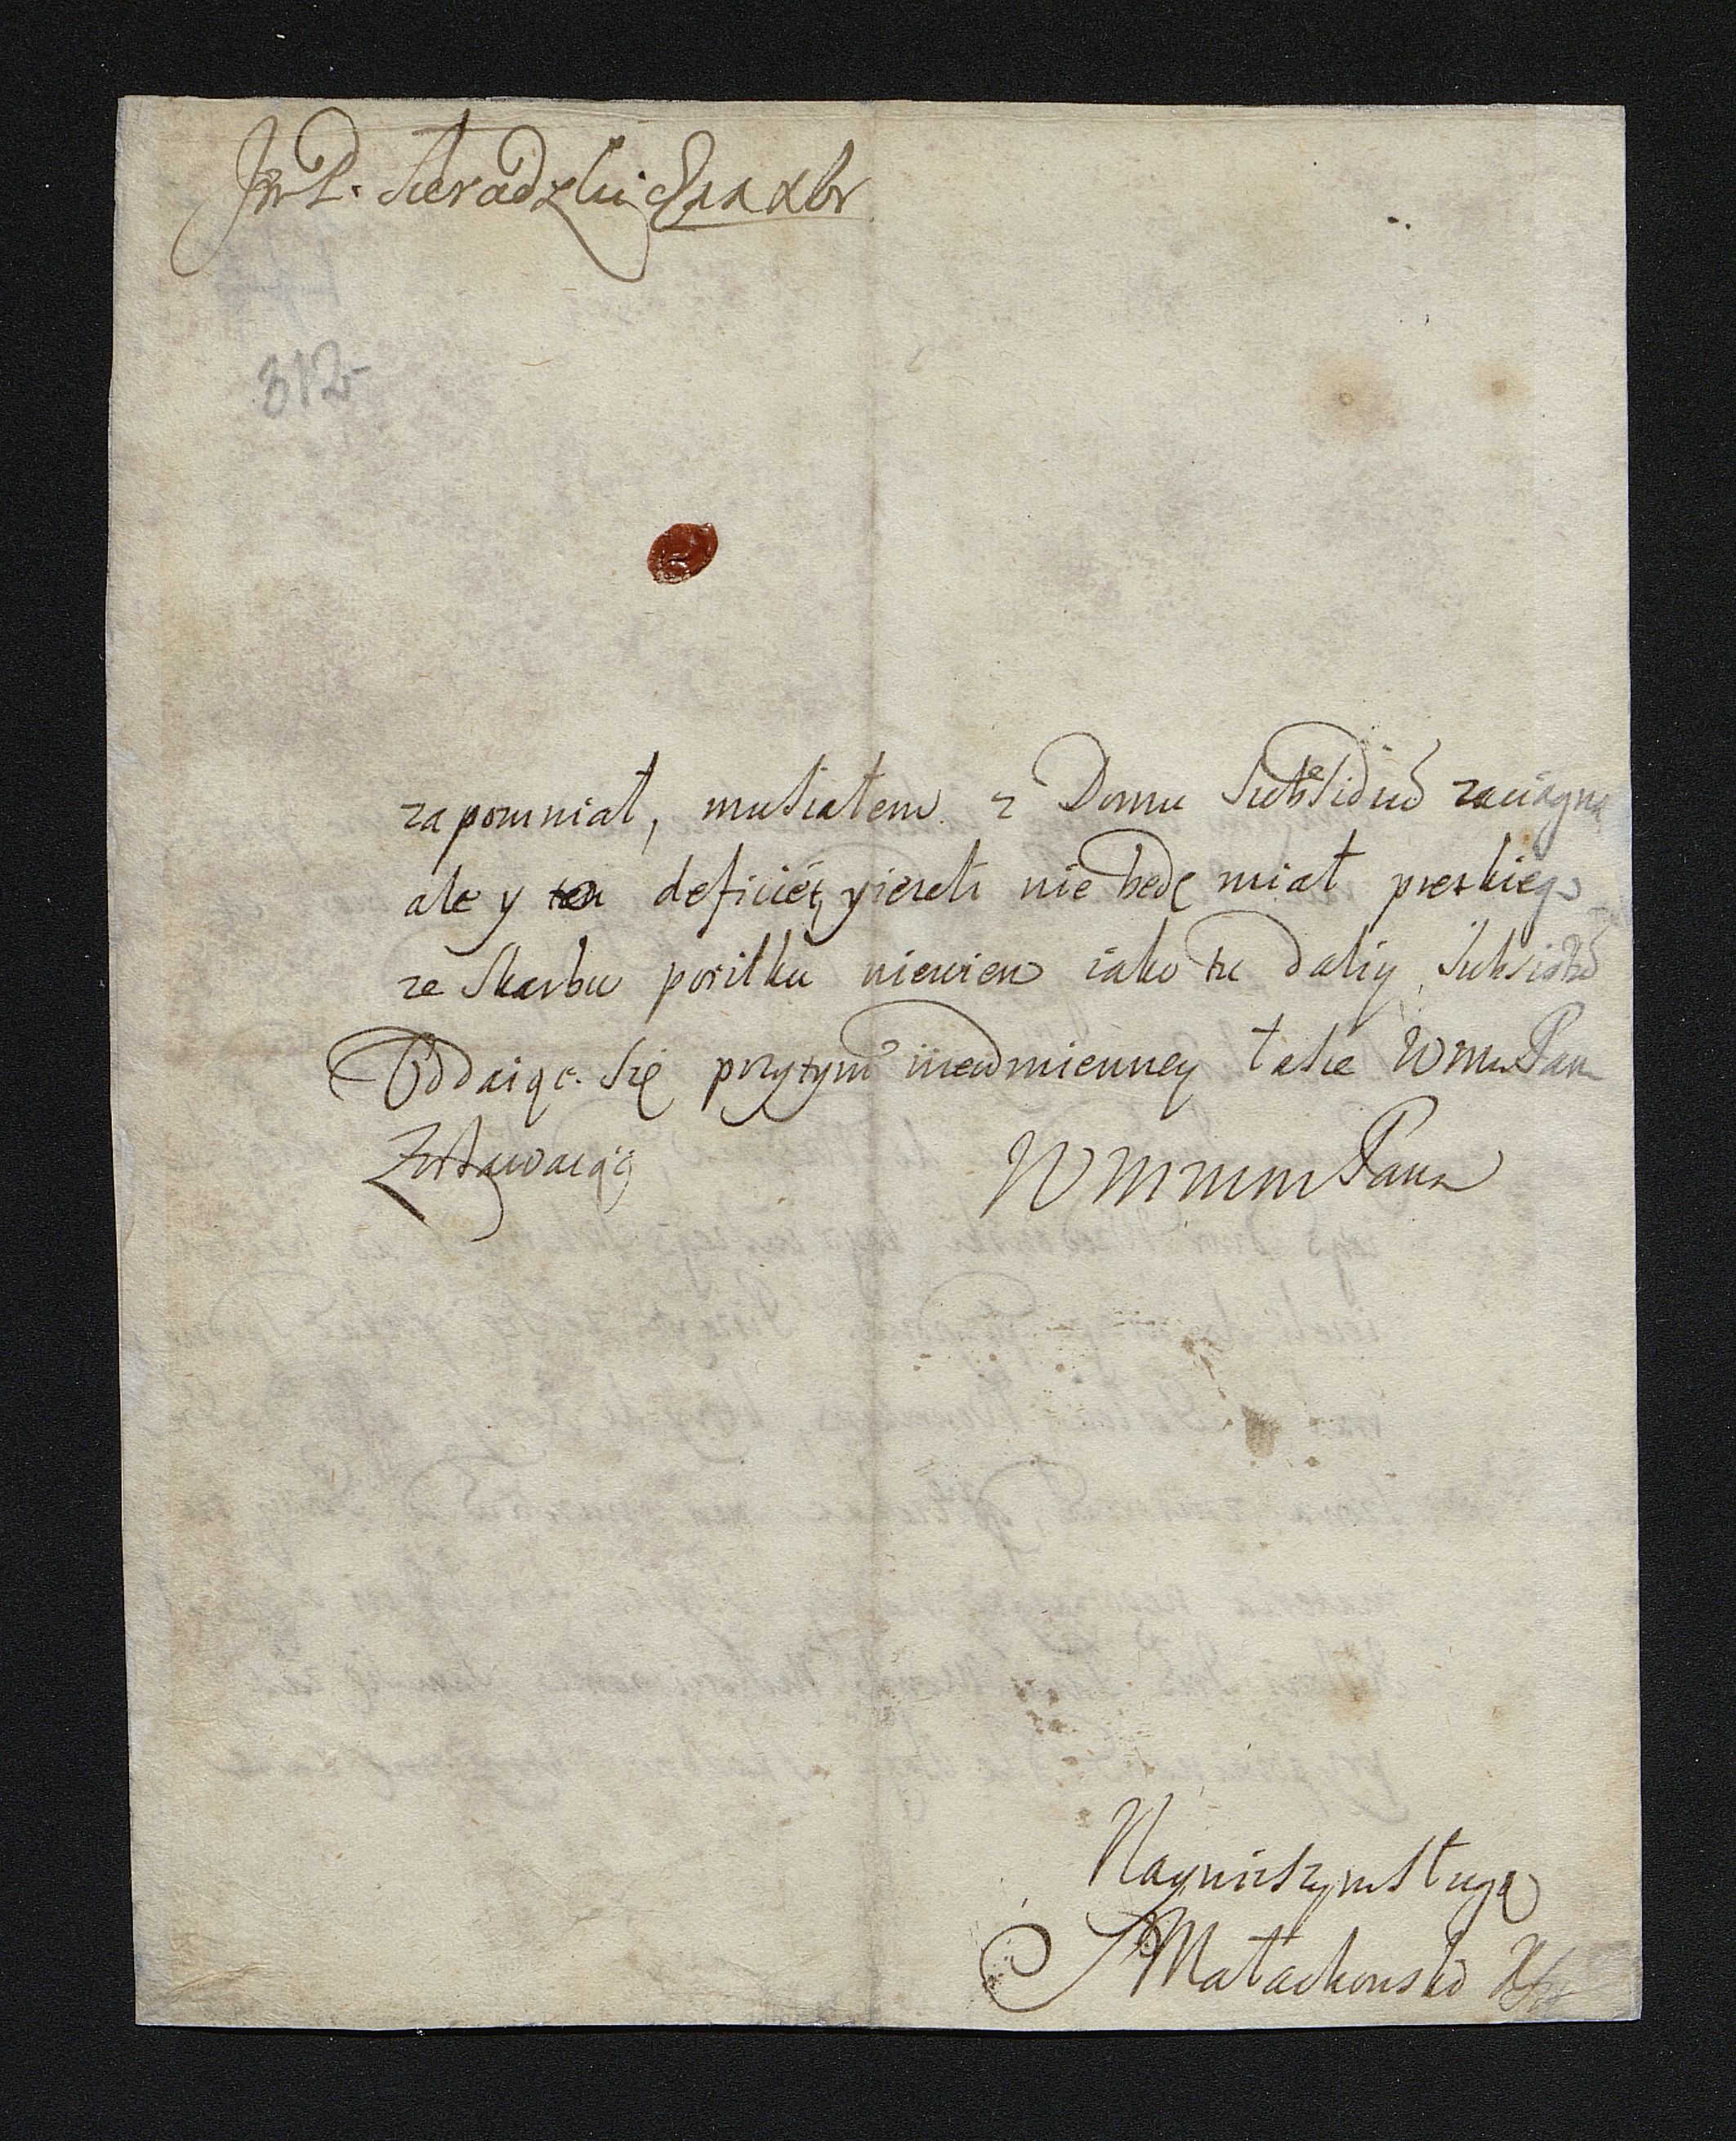 JmP. Sieradzki 8va Xbr
312
zapomniał, musiałem z Domu Subsidiu zaciągną
ale y ten deficiet, y ieżeli nie będę miał prętkiego
ze Skarbu posiłku niewiem iako tu daliy subsisto
Oddaiąc się przytym nieodmienney łasce WmmPan
Zostawaiąc
WMmm Pana
Nayniższym Sługą
S Małachowski